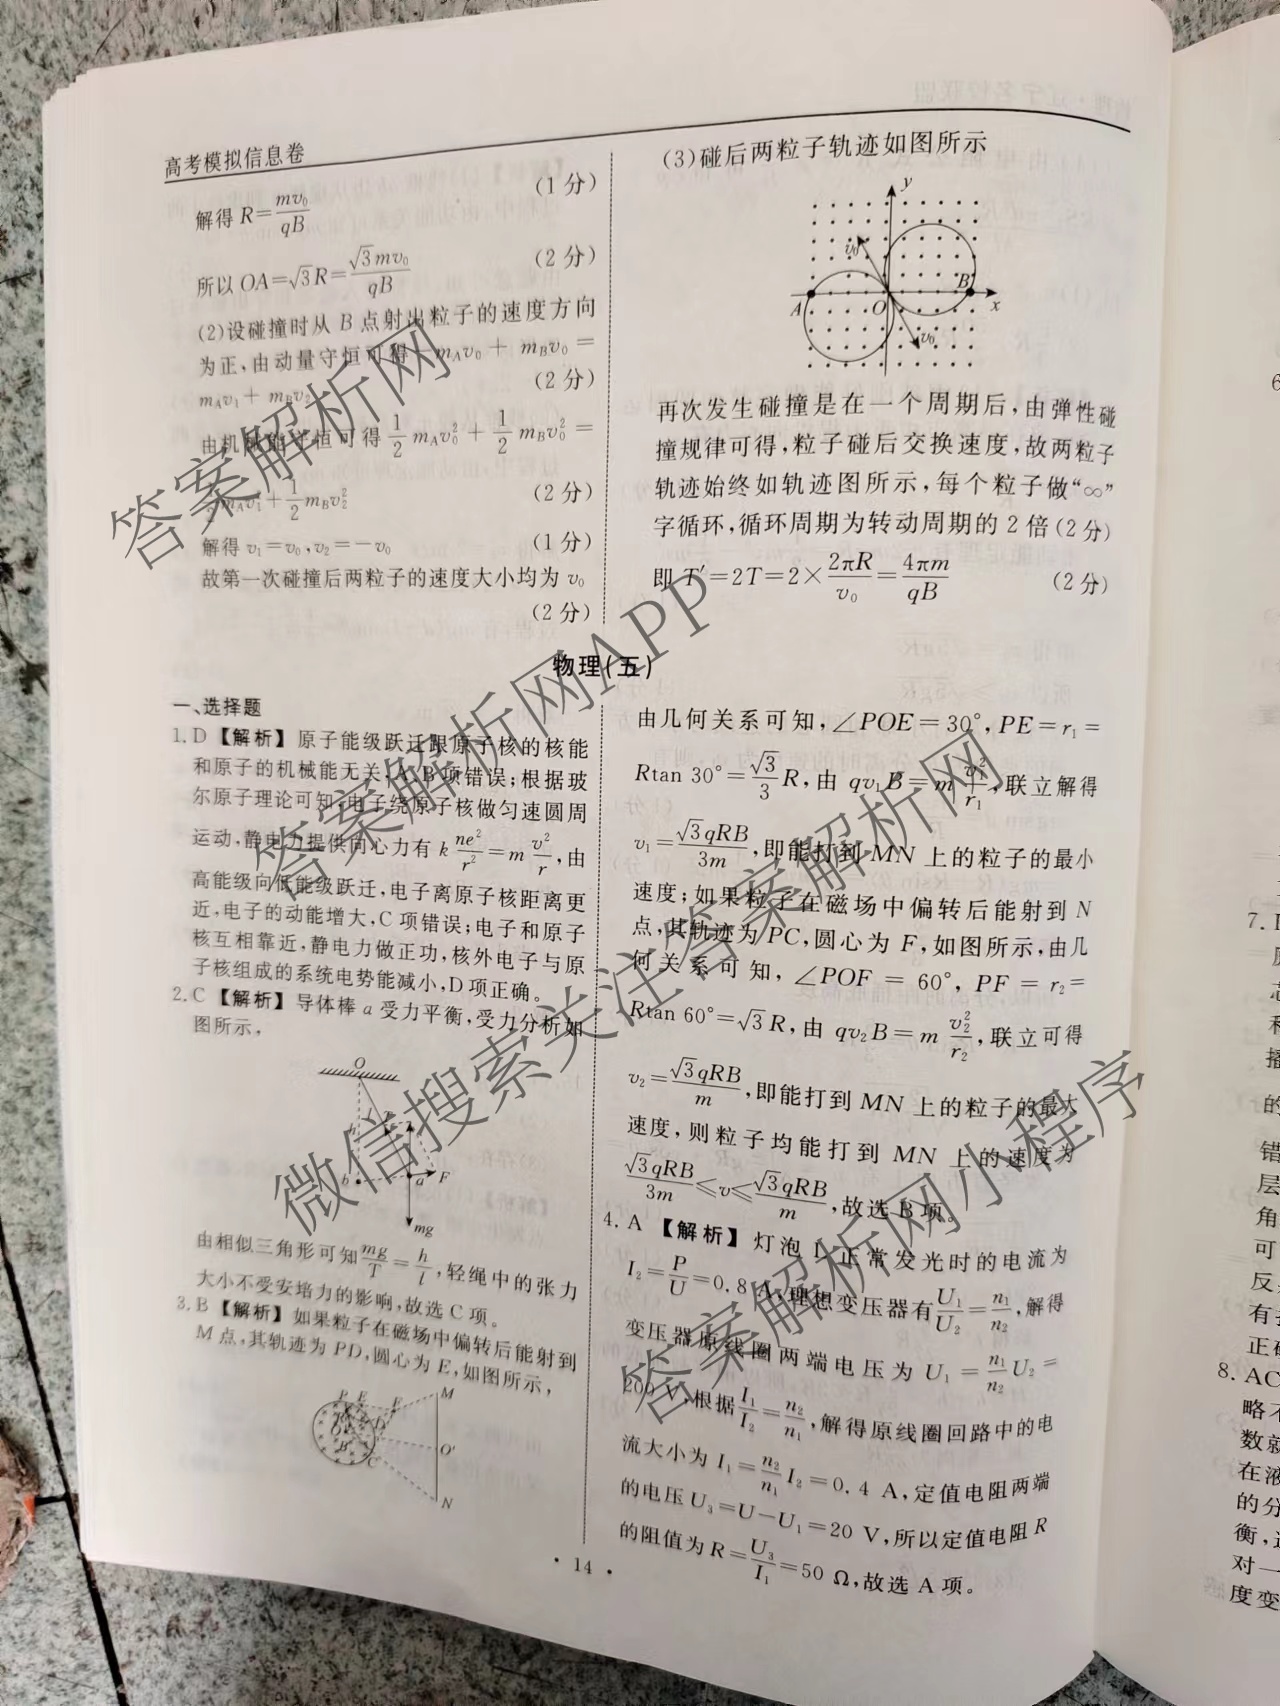 高考模拟信息卷
(1分)
解得 R=mv₀/qB
所以 OA=√3R=√3mv₀/qB (2分)
(2)设碰撞时从 B 点射出粒子的速度方向
为正,由动量守恒可得-m_Av₀+m_Bv₀=
m_Av₁+m_Bv₂ (2分)
由机械能守恒可得1/2 m_Av₀²+1/2 m_Bv₀²=
1/2 m_Av₁²+1/2 m_Bv₂² (2分)
解得 v₁=v₀,v₂=-v₀ (1分)
故第一次碰撞后两粒子的速度大小均为 v₀
(2分)
(3)碰后两粒子轨迹如图所示
y
v₀
A
O
B
x
v₀
再次发生碰撞是在一个周期后,由弹性碰
撞规律可得,粒子碰后交换速度,故两粒子
轨迹始终如轨迹图所示,每个粒子做“∞”
字循环,循环周期为转动周期的 2 倍(2分)
即 T′=2T=2×2πR/v₀=4πm/qB (2分)
物理(五)
一、选择题
1. D 【解析】原子能级跃迁跟原子核的核能
和原子的机械能无关,A、B项错误;根据玻
尔原子理论可知,电子绕原子核做匀速圆周
运动,静电力提供向心力有 k ne²/r²=m v²/r,由
高能级向低能级跃迁,电子离原子核距离更
近,电子的动能增大,C项错误;电子和原子
核互相靠近,静电力做正功,核外电子与原
子核组成的系统电势能减小,D项正确。
2. C 【解析】导体棒 a 受力平衡,受力分析如
图所示,
O
h
l
T
b
a
F
mg
由相似三角形可知mg/T=h/l,轻绳中的张力
大小不受安培力的影响,故选C项。
3. B 【解析】如果粒子在磁场中偏转后能射到
M 点,其轨迹为 PD,圆心为 E,如图所示,
P
E
F
M
D
O
O′
B
C
N
由几何关系可知,∠POE=30°,PE=r₁=
Rtan 30°=√3/3 R,由 qv₁B=m v₁²/r₁,联立解得
v₁=√3qRB/3m,即能打到 MN 上的粒子的最小
速度;如果粒子在磁场中偏转后能射到 N
点,其轨迹为 PC,圆心为 F,如图所示,由几
何关系可知,∠POF=60°,PF=r₂=
Rtan 60°=√3 R,由 qv₂B=m v₂²/r₂,联立可得
v₂=√3qRB/m,即能打到 MN 上的粒子的最大
速度,则粒子均能打到 MN 上的速度为
√3qRB/3m≤v≤√3qRB/m,故选 B 项。
4. A 【解析】灯泡 L 正常发光时的电流为
I₂=P/U=0.8 A,理想变压器有U₁/U₂=n₁/n₂,解得
变压器原线圈两端电压为 U₁=n₁/n₂ U₂=
200 V,根据I₁/I₂=n₂/n₁,解得原线圈回路中的电
流大小为 I₁=n₂/n₁ I₂=0.4 A,定值电阻两端
的电压 U₃=U-U₁=20 V,所以定值电阻 R
的阻值为 R=U₃/I₁=50 Ω,故选 A 项。
· 14 ·
7.
8. AC
略不
数就
在液
的分
对一
度变
答案解析网
答案解析网APP
微信搜索关注答案解析网
答案解析网小程序